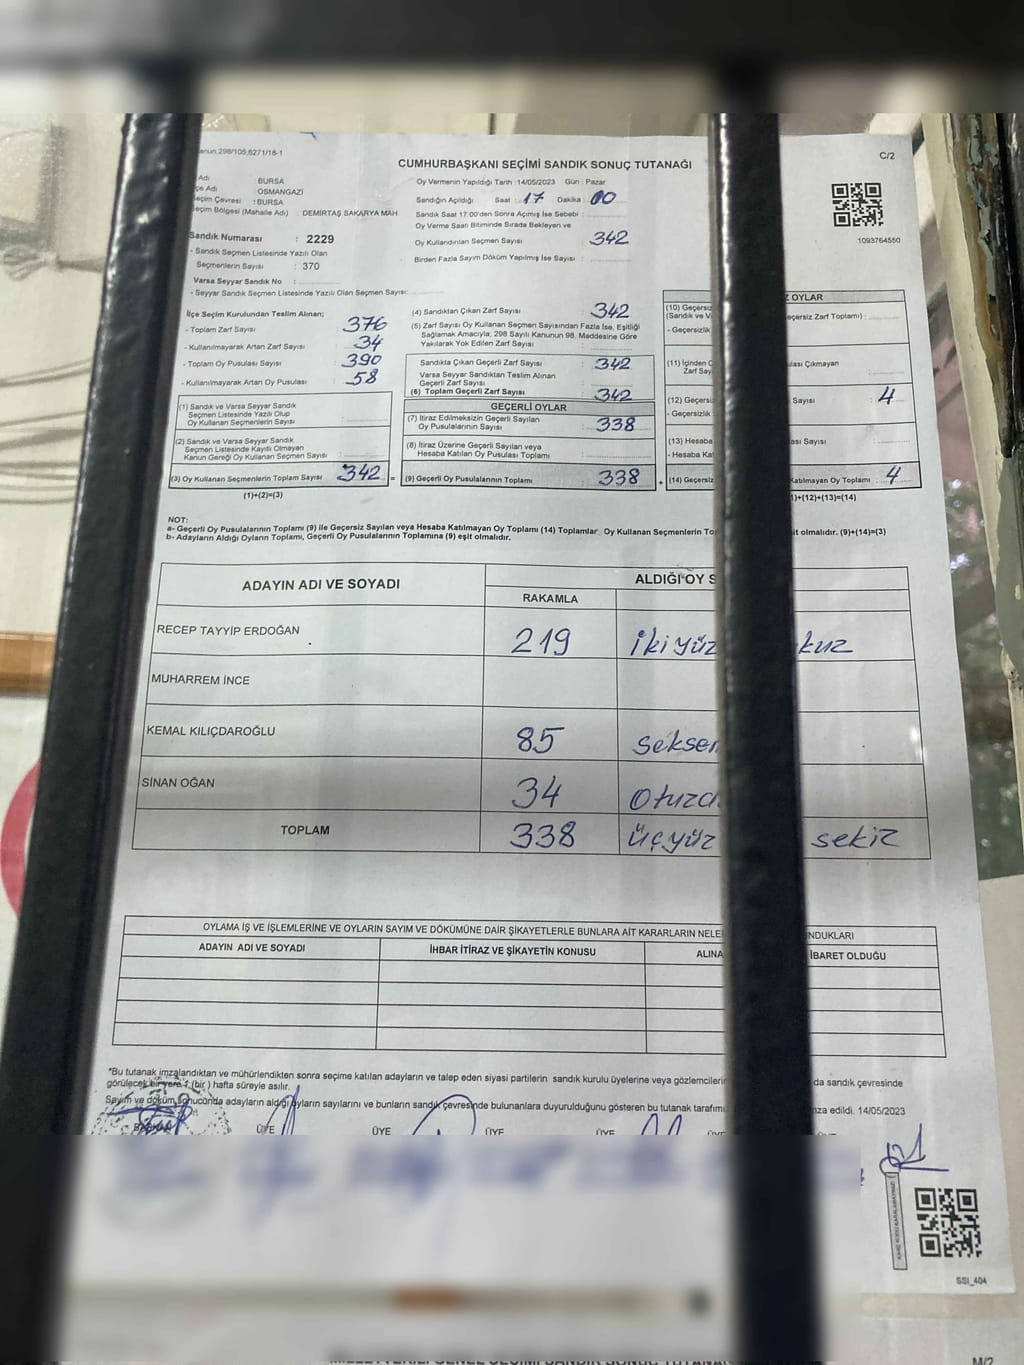 CUMHURBAŞKANI SEÇİMİ SANDIK SONUÇ TUTANAĞI
C/2
BURSA
OSMANGAZİ
: BURSA
Seçim Bölgesi (Mahalle Adı) : DEMİRTAŞ SAKARYA MAH.
Sandık Numarası : 2229
- Sandık Seçmen Listesinde Yazılı Olan
Seçmenlerin Sayısı : 370
Varsa Seyyar Sandık No :
- Seyyar Sandık Seçmen Listesinde Yazılı Olan Seçmen Sayısı:
Oy Vermenin Yapıldığı Tarih : 14/05/2023 Gün : Pazar
Sandığın Açıldığı Saat : 17 Dakika : 00
Sandık Saat 17.00'den Sonra Açımış İse Sebebi :
Oy Verme Saati Bitiminde Sırada Bekleyen ve
Oy Kullandırılan Seçmen Sayısı 342
Birden Fazla Sayım Döküm Yapılmış İse Sayısı :
1093764550
İlçe Seçim Kurulundan Teslim Alınan;
- Toplam Zarf Sayısı 376
- Kullanılmayarak Artan Zarf Sayısı 34
- Toplam Oy Pusulası Sayısı 390
- Kullanılmayarak Artan Oy Pusulası 58
(1) Sandık ve Varsa Seyyar Sandık
Seçmen Listesinde Yazılı Olup
Oy Kullanan Seçmenlerin Sayısı :
(2) Sandık ve Varsa Seyyar Sandık
Seçmen Listesinde Kayıtlı Olmayan
Kanun Gereği Oy Kullanan Seçmen Sayısı :
(3) Oy Kullanan Seçmenlerin Toplam Sayısı 342
(1)+(2)=(3)
(4) Sandıktan Çıkan Zarf Sayısı 342
(5) Zarf Sayısı Oy Kullanan Seçmen Sayısından Fazla İse, Eşitliği
Sağlamak Amacıyla; 298 Sayılı Kanunun 98. Maddesine Göre
Yakılarak Yok Edilen Zarf Sayısı :
Sandıkta Çıkan Geçerli Zarf Sayısı 342
Varsa Seyyar Sandıktan Teslim Alınan
Geçerli Zarf Sayısı
(6) Toplam Geçerli Zarf Sayısı 342
GEÇERLİ OYLAR
(7) İtiraz Edilmeksizin Geçerli Sayılan
Oy Pusulalarının Sayısı 338
(8) İtiraz Üzerine Geçerli Sayılan veya
Hesaba Katılan Oy Pusulası Toplamı
= (9) Geçerli Oy Pusulalarının Toplamı 338
OYLAR
(10)
(Sandık ve Zarf Toplamı) :
(11) İçinden Çıkmayan
(12) Sayısı 4
(13) Hesaba Sayısı
+ (14) Katılmayan Oy Toplamı 4
+(12)+(13)=(14)
NOT:
a- Geçerli Oy Pusulalarının Toplamı (9) ile Geçersiz Sayılan veya Hesaba Katılmayan Oy Toplamı (14) Toplamlar Oy Kullanan Seçmenlerin olmalıdır. (9)+(14)=(3)
b- Adayların Aldığı Oyların Toplamı, Geçerli Oy Pusulalarının Toplamına (9) eşit olmalıdır.
ADAYIN ADI VE SOYADI ALDIĞI OY
RAKAMLA
RECEP TAYYİP ERDOĞAN 219 ikiyüz
MUHARREM İNCE
KEMAL KILIÇDAROĞLU 85
SİNAN OĞAN 34
TOPLAM 338 üçyüz sekiz
OYLAMA İŞ VE İŞLEMLERİNE VE OYLARIN SAYIM VE DÖKÜMÜNE DAİR ŞİKAYETLERLE BUNLARA AİT KARARLARIN
ADAYIN ADI VE SOYADI İHBAR İTİRAZ VE ŞİKAYETİN KONUSU İBARET OLDUĞU
*Bu tutanak imzalandıktan ve mühürlendikten sonra seçime katılan adayların ve talep eden siyasi partilerin sandık kurulu üyelerine veya da sandık çevresinde
görülecek bir yere 1 (bir) hafta süreyle asılır.
Sayım ve döküm sonucunda adayların aldığı oyların sayılarını ve bunların sandık çevresinde bulunanlara duyurulduğunu gösteren bu tutanak edildi. 14/05/2023
BAŞKAN ÜYE ÜYE ÜYE ÜYE
SSI_404
M/2